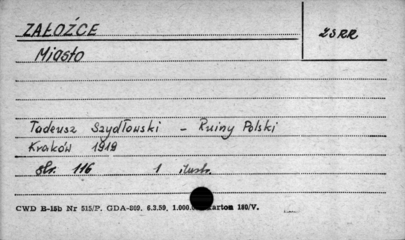 ZAŁOŹCE ZSRR
Miasto
Tadeusz Szydłowski – Ruiny Polski
Kraków 1919
str. 116 1 ilustr.
CWD B-15b Nr 515/P. GDA-809. 6.3.59. 1.000. Karton 180/V.